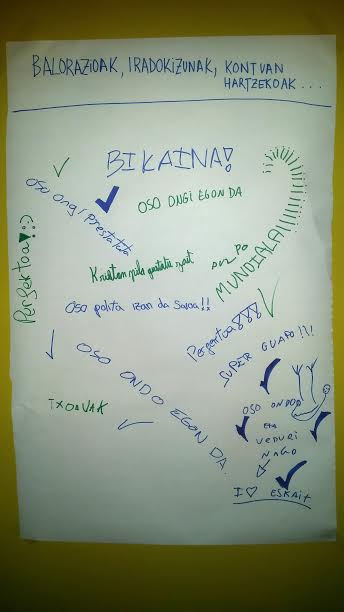 BALORAZIOAK, IRADOKIZUNAK, KONTUAN
HARTZEKOAK...
BIKAINA!
OSO ONGI PRESTATUTA
OSO ONGI EGON DA
Perfektoa! :)
pila gustatu zait
MUNDIALA!!!!!!!!
OSO polita izan da Saioa!!
Perfektoa!!!
SUPER GUAPO!!!
OSO ONDO EGON DA.
TXOUAK
OSO ONDO
ETA
VEDURI
NAGO
I ♡ ESKAIT